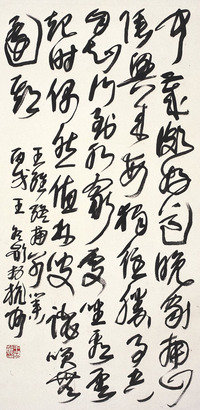 中歲頗好道晚家南山
陲興來每獨往勝事空
自知行到水窮處坐看雲
起時偶然值林叟談笑無
還期
王維終南別業
丙戌王冬齡於杭